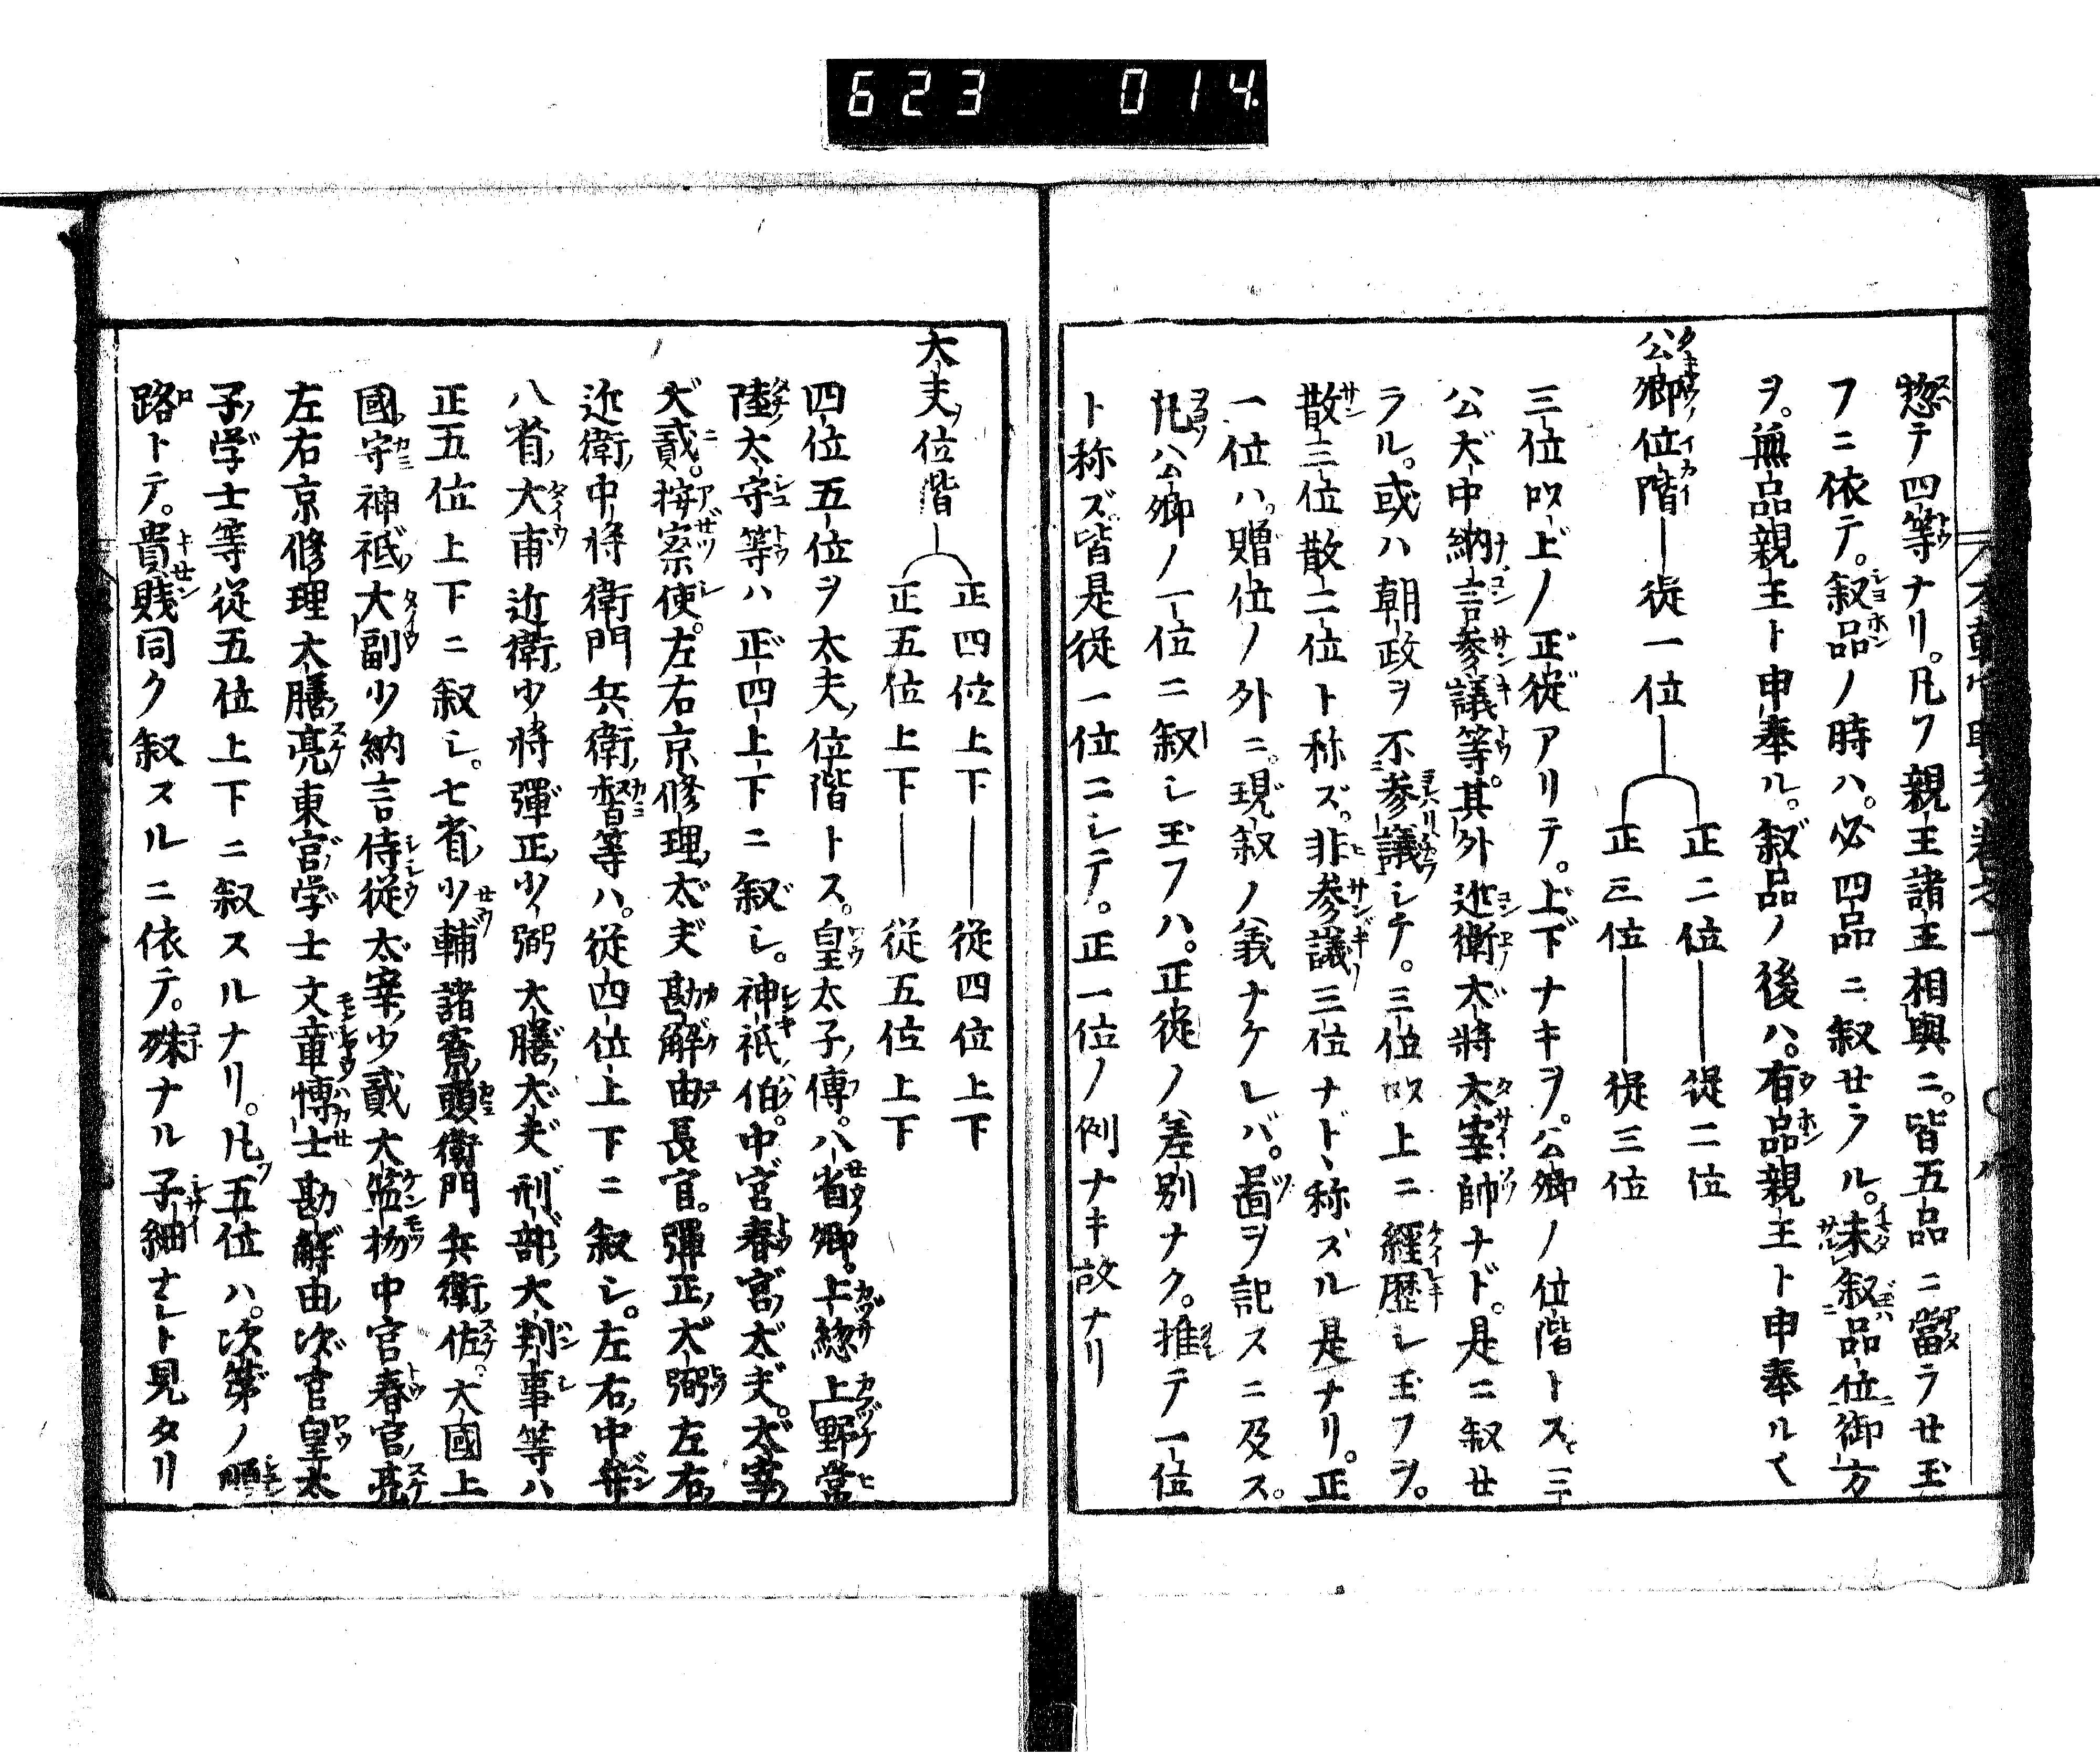 623 014
惣テ四等ナリ。凡ソ親王諸王相與ニ。皆五品ニ當ラせ玉
フニ依テ。叙品ノ時ハ。必四品ニ叙せラル。未叙品位御方
ヲ。無品親王ト申奉ル。叙品ノ後ハ。有品親王ト申奉ル也
公卿位階―従一位
正二位――従二位
正三位――従三位
三位以上ノ正従アリテ。上下ナキヲ。公卿ノ位階トス三
公大中納言参議等。其外近衛大将太宰帥ナド。是ニ叙せ
ラル。或ハ朝政ヲ不参議シテ。三位以上ニ經歴シ玉フヲ。
散三位散二位ト称ズ。非参議三位ナド、称ズル是ナリ。正
一位ハ。贈位ノ外ニ。現叙ノ義ナケレバ。啚ヲ記スニ及ス。
凡ハ公卿ノ一位ニ叙シ玉フハ。正従ノ差別ナク。推テ一位
ト称ズ皆是従一位ニシテ。正一位ノ例ナキ故ナリ
大夫位階
正四位上下――従四位上下
正五位上下――従五位上下
四位五位ヲ太夫位階トス。皇太子傳。八省卿。上総上野常
陸太守等ハ正四上下ニ叙シ。神祇伯。中宮春宮大夫。太宰
大貳。按察使。左右京修理太夫勘解由長官。彈正大弼左右
近衛中将衛門兵衛督等ハ。従四位上下ニ叙シ。左右中弁
八省大甫近衛少将彈正少弼大膳大夫刑部大判事等ハ
正五位上下ニ叙シ。七省少輔諸寮頭衛門兵衛佐。大國上
國守神祇大副少納言侍従太宰少貳大監物中宮春宮亮
左右京修理大膳亮東宮学士文章博士勘解由次官皇太
子学士等従五位上下ニ叙スルナリ。凡五位ハ。次第ノ
路トテ。貴賎同ク叙スルニ依テ。殊ナル子細ナシト見タリ